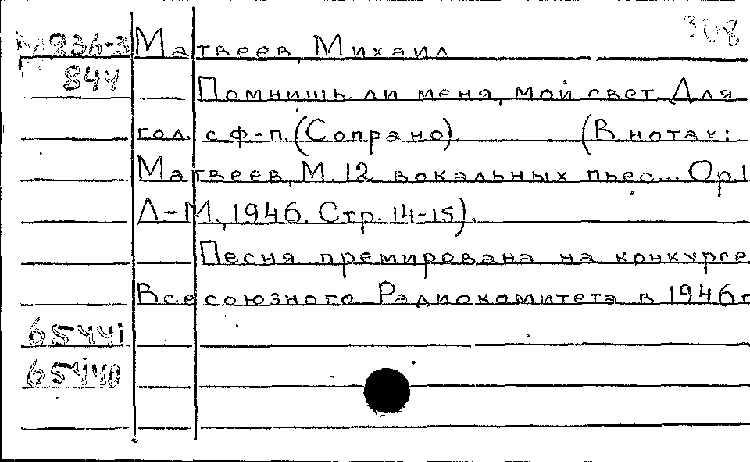 308
М 236-3 Матвеев, Михаил
844 Помнишь ли меня, мой свет. Для
гол. с ф-п. (Сопрано). (В нотах:
Матвеев, М. 12 вокальных пьес... Ор.1
Л-М., 1946. Стр. 14-15).
Песня премирована на конкурсе
Всесоюзного Радиокомитета в 1946 г